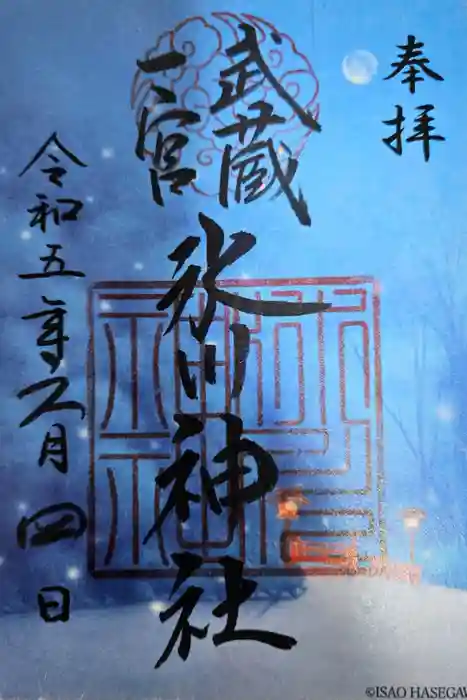 奉拝
武蔵
一宮
氷川神社
令和五年二月四日
©ISAO HASEGAW